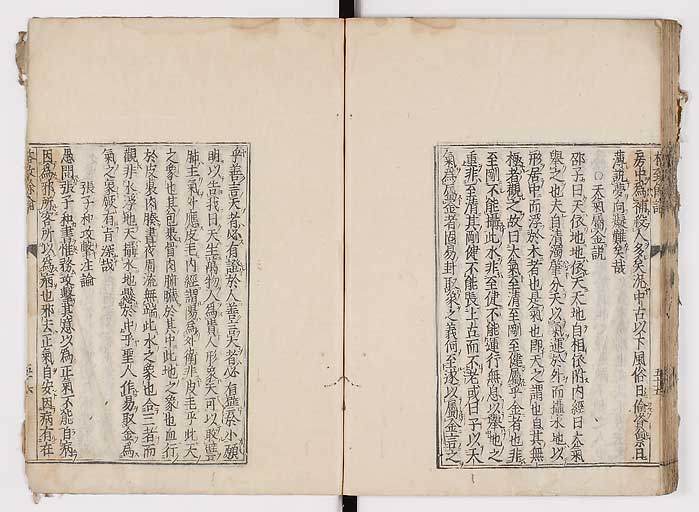 房中為補殺人多矣況中古以下風俗日偷資稟日
薄說夢向癡難矣哉
○太氣屬金說
邵子曰天依地地依天天地自相依附內經曰太氣
舉之也夫自清濁肇分天以氣運於外而攝水地以
形居中而浮於水者也是氣也即天之謂也自其無
極者觀之故曰太氣至清至剛至健屬乎金者也非
至剛不能攝此水非至健不能運行無息以舉地之
重非至清其剛健不能長上古而不老或曰子以天
氣為屬金者固易卦取象之義何至遂以屬金言之
乎善言天者必有證於人善言大者必有譬於小願
明以告我曰天生萬物人為貴人形象天可以取譬
肺主氣外應皮毛內經謂陽為外衛非皮毛乎此天
之象也其包裹骨肉臟腑於其中此地之象也血行
於皮裹肉腠晝夜周流無端此水之象也合三者而
觀非水浮地天攝水地懸於中乎聖人作易取金為
氣之象厥有旨深哉
張子和攻擊注論
愚閱張子和書惟務攻擊其意以為正氣不能自病
因為邪所客所以為病也邪去正氣自安因病有在